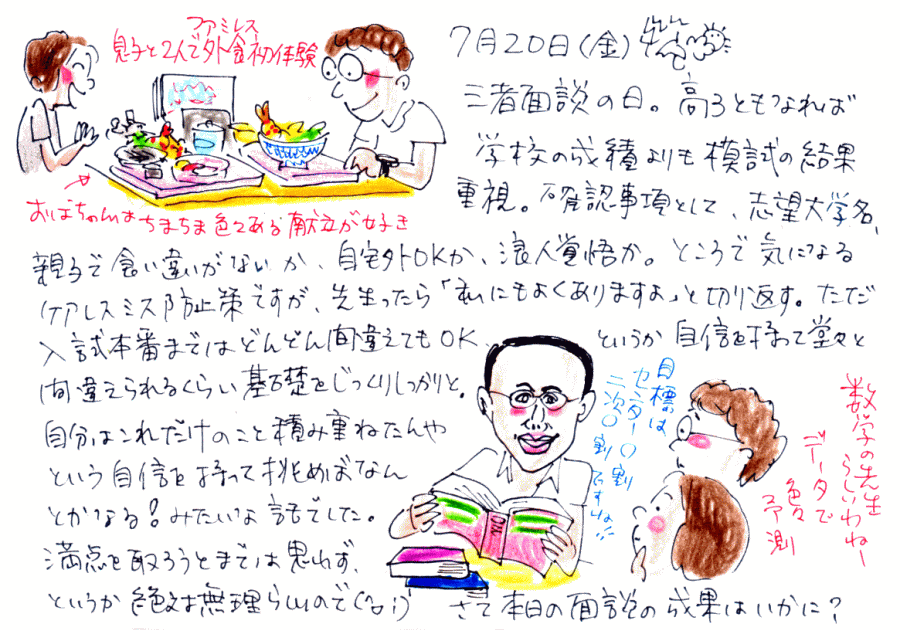 ファミレス
息子と2人で外食初体験
おばちゃんはちまちま色々ある献立が好き
7月20日(金)
三者面談の日。高3ともなれば
学校の成績よりも模試の結果
重視。確認事項として、志望大学名、
親子で食い違いがないか、自宅外OKか、浪人覚悟か。ところで気になる
ケアレスミス防止策ですが、先生ったら「私にもよくありますよ」と切り返す。ただ
入試本番まではどんどん間違えてもOK、というか自信を持って堂々と
間違えられるくらい基礎をじっくりしっかりと。
自分はこれだけのこと積み重ねたんや
という自信を持って挑めばなん
とかなる?みたいな話でした。
満点を取ろうとまでは思わず、
というか絶対無理らしいので
さて本日の面談の成果はいかに?
目標は
センター〇割
二次〇割ですね
数学の先生
らしいわねー
データで
色々
予測